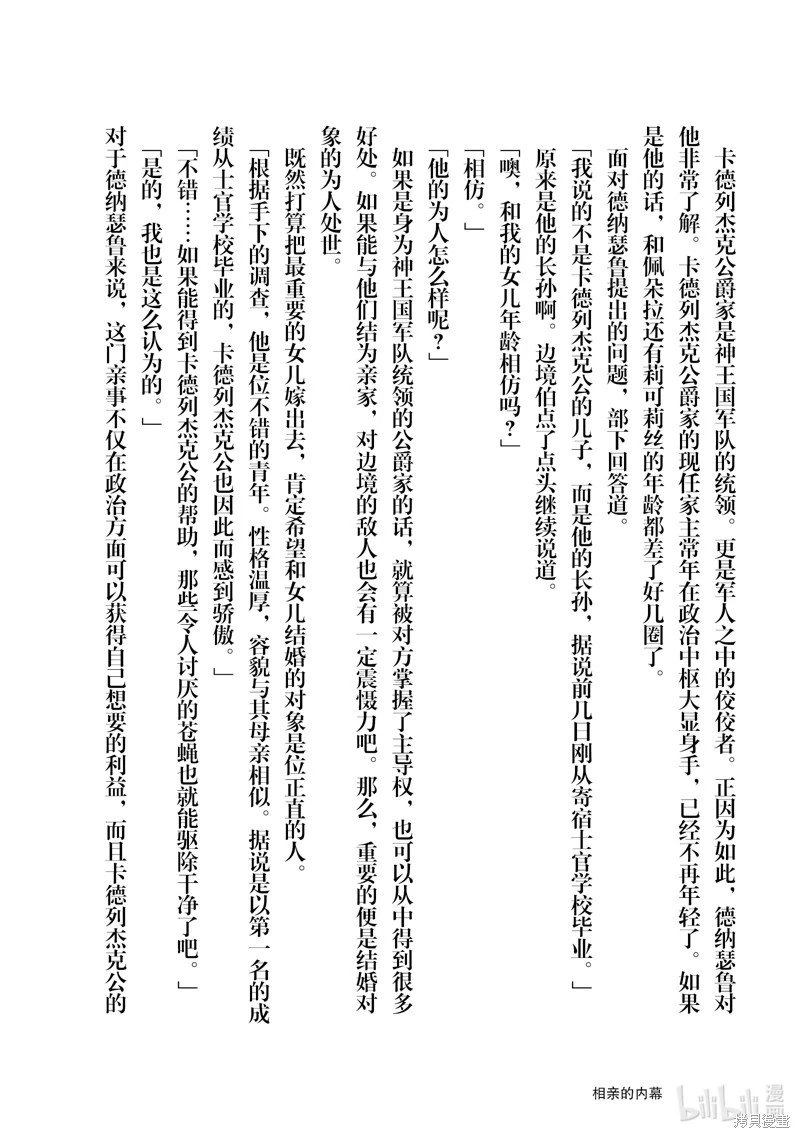 卡德列杰克公爵家是神王国军队的统领。更是军人之中的佼佼者。正因为如此，德纳瑟鲁对
他非常了解。卡德列杰克公爵家的现任家主常年在政治中枢大显身手，已经不再年轻了。如果
是他的话，和佩朵拉还有莉可莉丝的年龄都差了好几圈了。
面对德纳瑟鲁提出的问题，部下回答道。
「我说的不是卡德列杰克公的儿子，而是他的长孙，据说前几日刚从寄宿士官学校毕业。」
原来是他的长孙啊。边境伯点了点头继续说道。
「噢，和我的女儿年龄相仿吗？」
「相仿。」
「他的为人怎么样呢？」
如果是身为神王国军队统领的公爵家的话，就算被对方掌握了主导权，也可以从中得到很多
好处。如果能与他们结为亲家，对边境的敌人也会有一定震慑力吧。那么，重要的便是结婚对
象的为人处世。
既然打算把最重要的女儿嫁出去，肯定希望和女儿结婚的对象是位正直的人。
「根据手下的调查，他是位不错的青年。性格温厚，容貌与其母亲相似。据说是以第一名的成
绩从士官学校毕业的，卡德列杰克公也因此而感到骄傲。」
「不错……如果能得到卡德列杰克公的帮助，那些令人讨厌的苍蝇也就能驱除干净了吧。」
「是的，我也是这么认为的。」
对于德纳瑟鲁来说，这门亲事不仅在政治方面可以获得自己想要的利益，而且卡德列杰克公的
相亲的内幕
bilibili漫画
拷贝漫畫